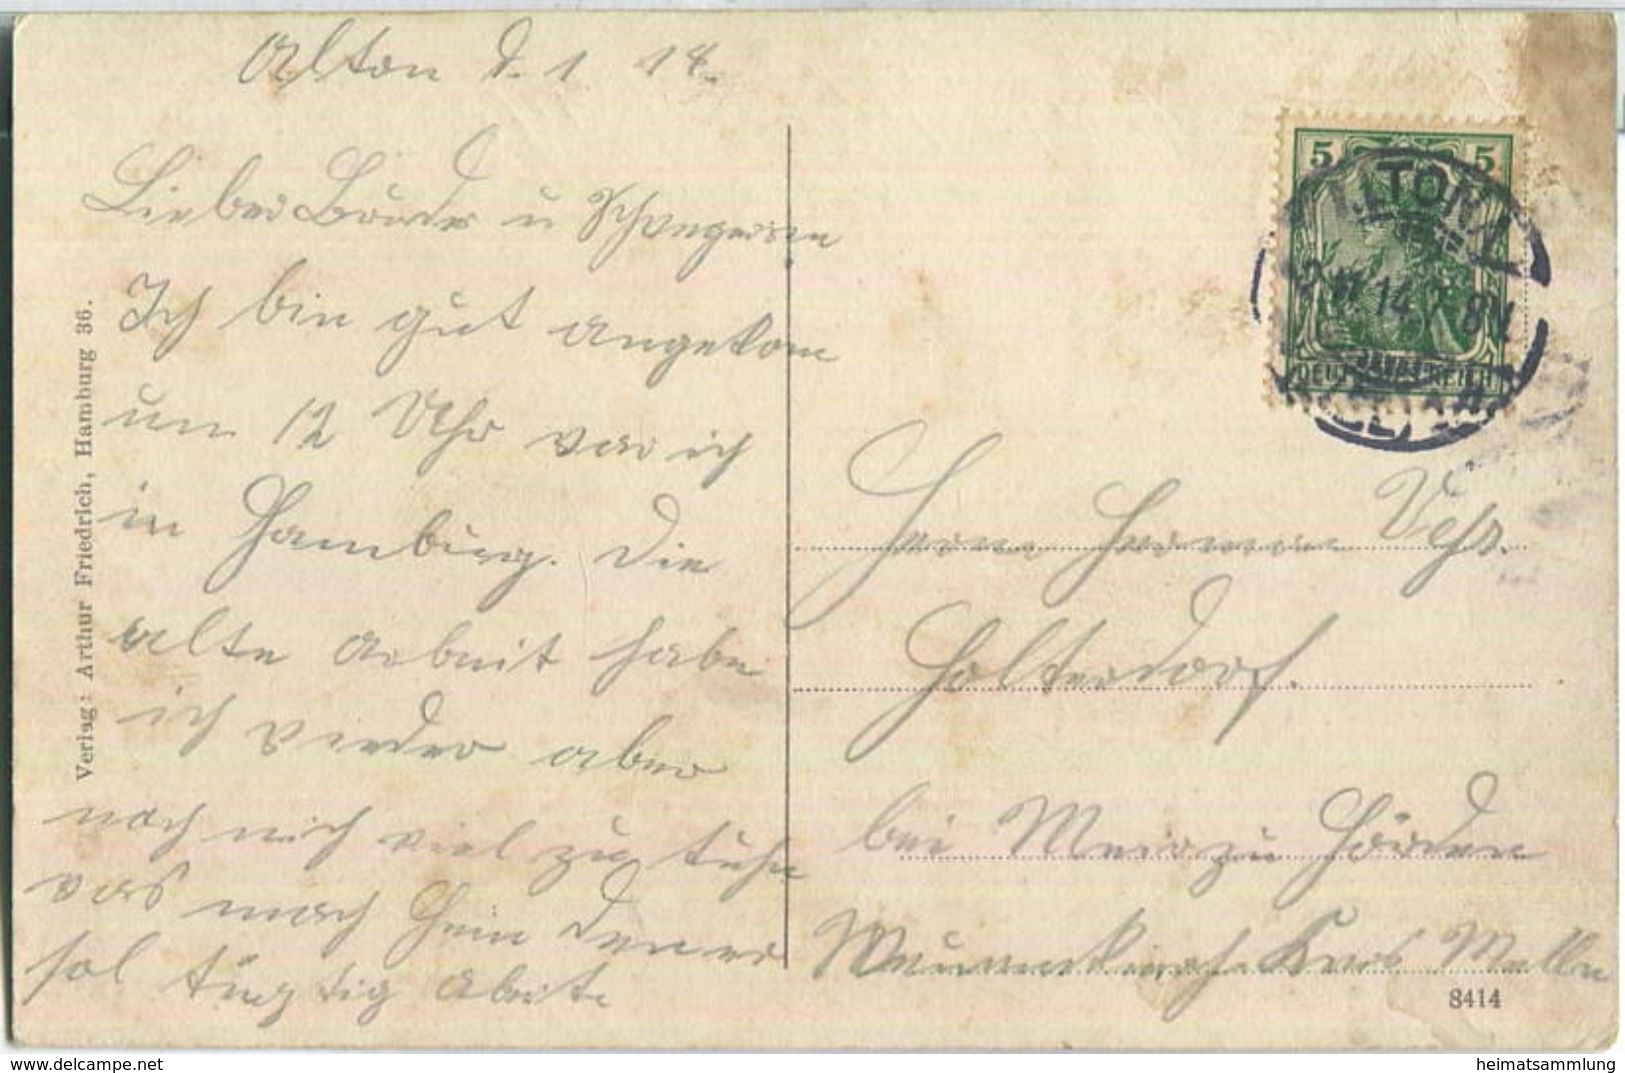 Alton d. 1 14.
Lieber Bruder u Schwegerin
Ich bin gut angekom
um 12 Uhr war ich
in Hamburg. Die
alte Arbeit habe
ich wieder aber
noch nich viel zu tuhn
was mach Hein der
sol tüchtig Abeite
Verlag: Arthur Friedrich, Hamburg 36.
5 5
ALTONA
14
DEUTSCHES REICH
Herrn Herman Vehs.
Holterdorf.
bei Meier zu Hörden
Neuenkirch. Kreis Melle
8414
delcampe.net
heimatsammlung